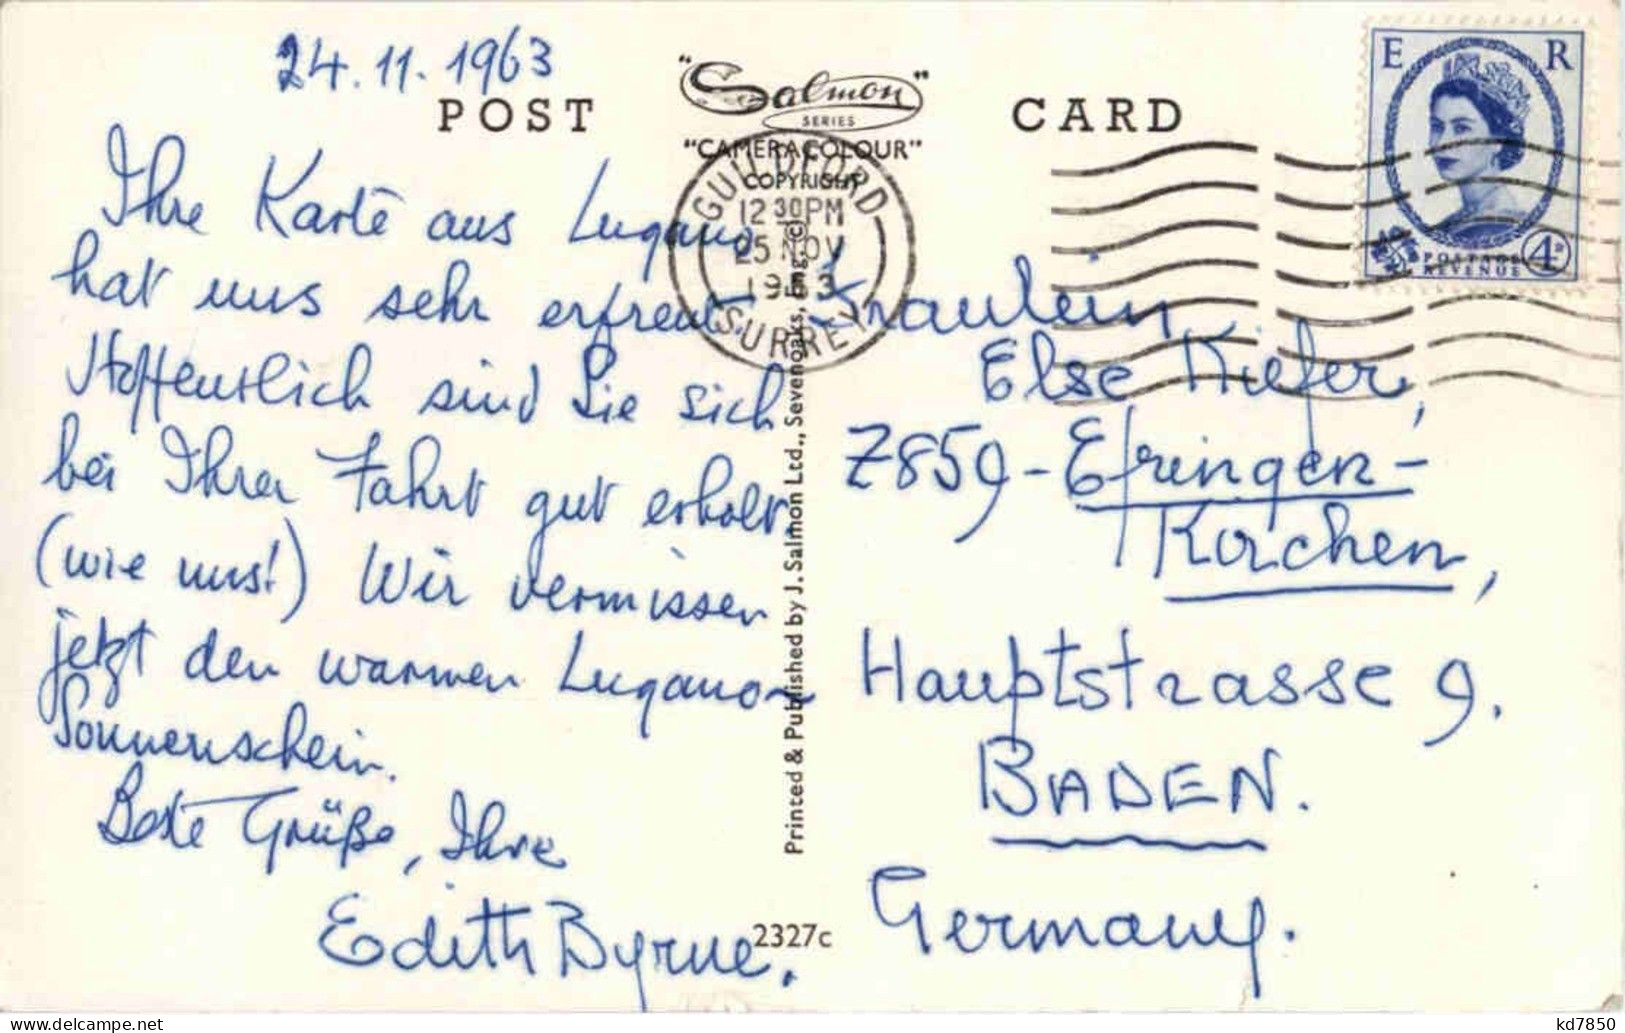 24.11.1963
POST CARD
"Salmon"
SERIES
"CAMERACOLOUR"
COPYRIGHT
GUILDFORD
12 30 PM
25 NOV
1963
SURREY
E R
POSTAGE
REVENUE
4D
Ihre Karte aus Lugano
hat uns sehr erfreut.
Hoffentlich sind Sie sich
bei Ihrer Fahrt gut erholt.
(wie uns!) Wir vermissen
jetzt den warmen Lugano-
Sonnenschein.
Beste Grüße, Ihre
Edith Byrne.
Printed & Published by J. Salmon Ltd., Sevenoaks, Eng. ©
2327c
Fräulein
Else Kiefer,
7859 - Efringen-
Kirchen,
Hauptstrasse 9.
BADEN.
Germany.
kd7850